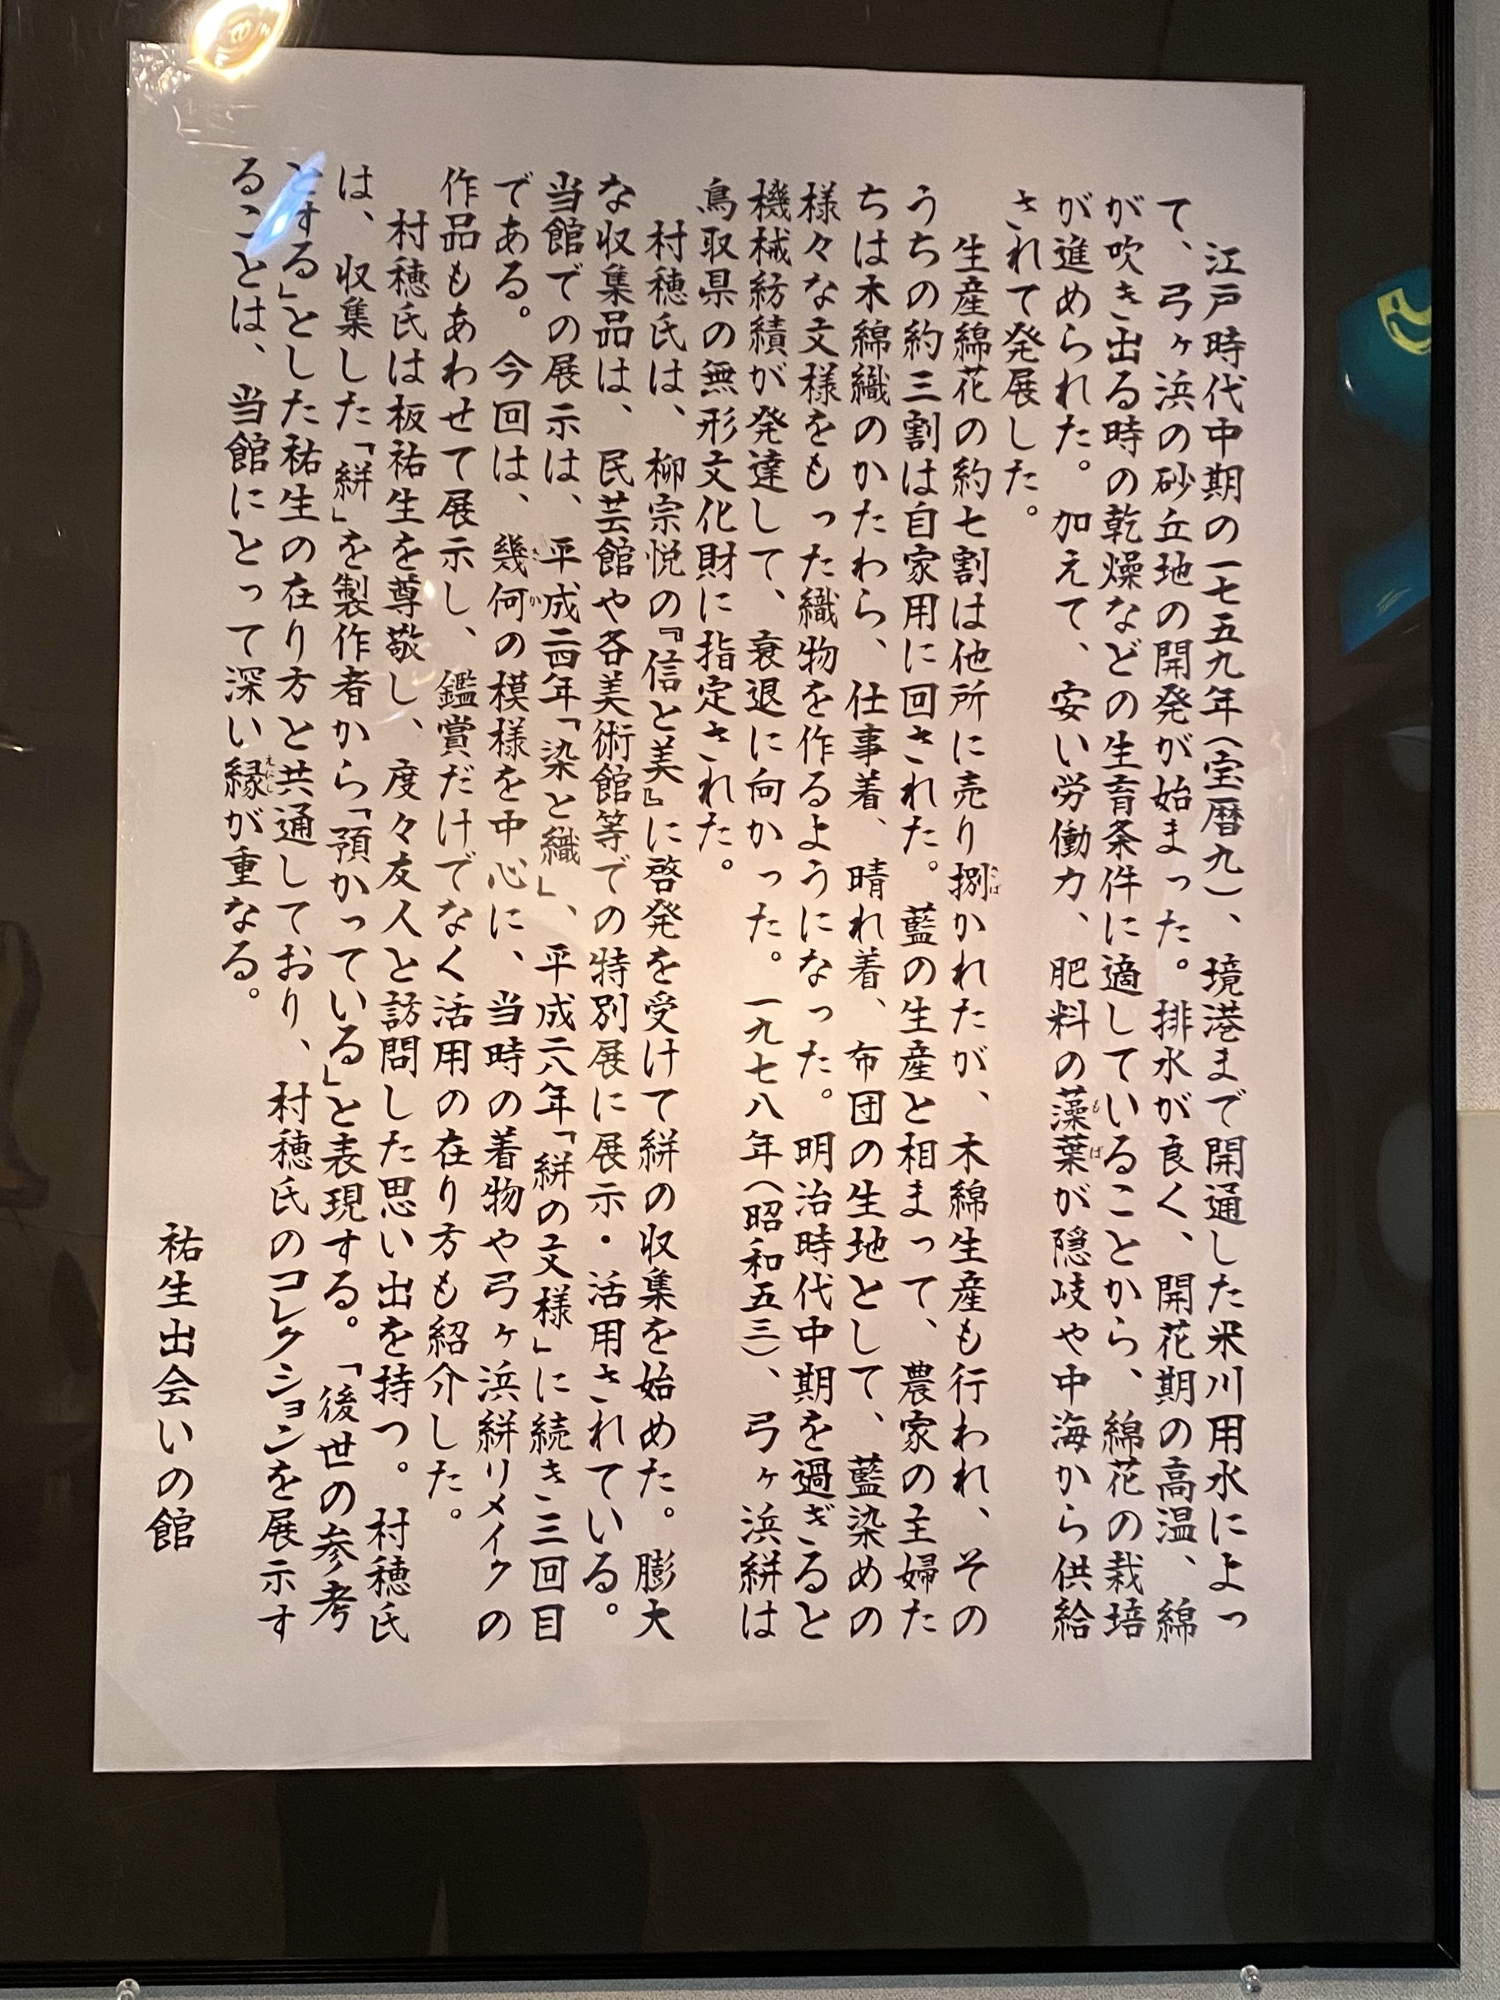 江戸時代中期の一七五九年（宝暦九）、境港まで開通した米川用水によっ
て、弓ヶ浜の砂丘地の開発が始まった。排水が良く、開花期の高温、綿
が吹き出る時の乾燥などの生育条件に適していることから、綿花の栽培
が進められた。加えて、安い労働力、肥料の藻葉が隠岐や中海から供給
されて発展した。
生産綿花の約七割は他所に売り捌かれたが、木綿生産も行われ、その
うちの約三割は自家用に回された。藍の生産と相まって、農家の主婦た
ちは木綿織のかたわら、仕事着、晴れ着、布団の生地として、藍染めの
様々な文様をもった織物を作るようになった。明治時代中期を過ぎると
機械紡績が発達して、衰退に向かった。一九七八年（昭和五三）、弓ヶ浜絣は
鳥取県の無形文化財に指定された。
村穂氏は、柳宗悦の『信と美』に啓発を受けて絣の収集を始めた。膨大
な収集品は、民芸館や各美術館等での特別展に展示・活用されている。
当館での展示は、平成二四年「染と織」、平成二六年「絣の文様」に続き三回目
である。今回は、幾何の模様を中心に、当時の着物や弓ヶ浜絣リメイクの
作品もあわせて展示し、鑑賞だけでなく活用の在り方も紹介した。
村穂氏は板祐生を尊敬し、度々友人と訪問した思い出を持つ。村穂氏
は、収集した「絣」を製作者から「預かっている」と表現する。「後世の参考
とする」とした祐生の在り方と共通しており、村穂氏のコレクションを展示す
ることは、当館にとって深い縁が重なる。
祐生出会いの館